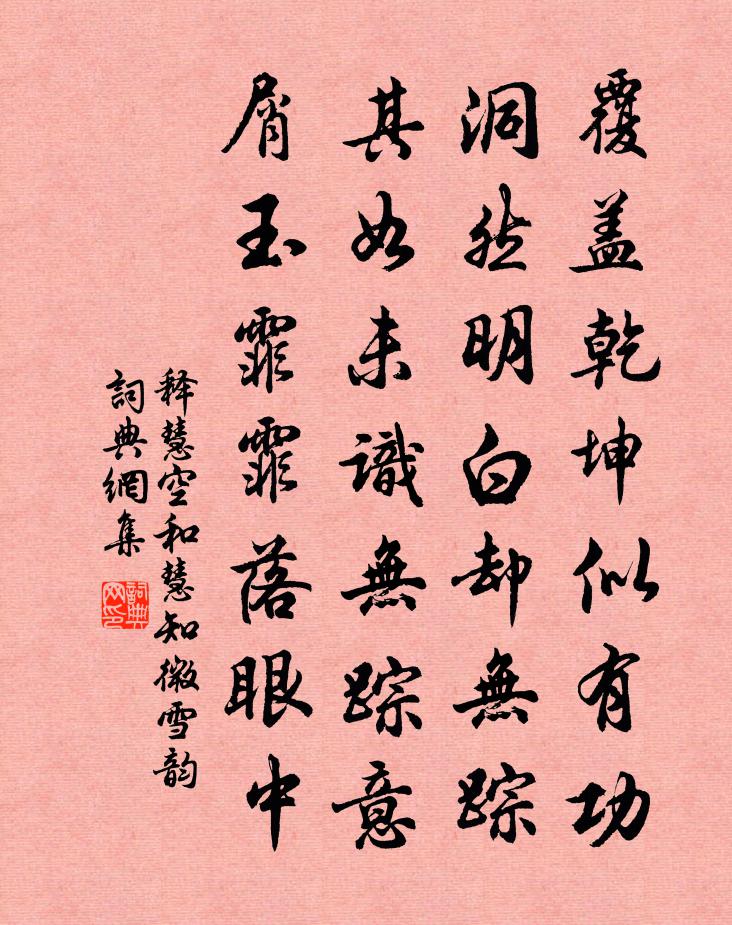 覆盖乾坤似有功
洞然明白却無踪
其如未識無踪意
屑玉霏霏落眼中
释慧空和慧知微雪韵
詞典網集
詞典网印